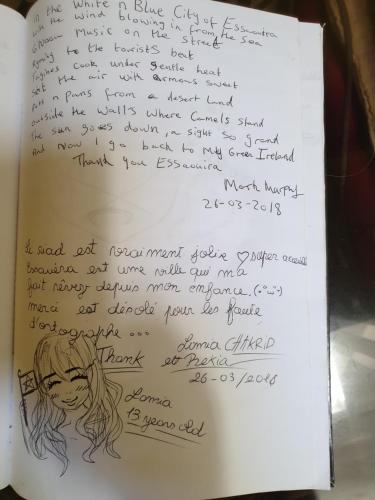 In the White n Blue City of Essaouira
with the wind blowing in from the sea
Gnawa Music on the street
to the tourists beat
Tagines cook under gentle heat
the air with armous sweet
n pans from a desert Land
outside the Walls Where Camels stand
the sun goes down, a sight so grand
And Now I go back to My Green Ireland
Thank You Essaouira
Mark Murphy
26-03-2018
Le riad est vraiment jolie ♡ super accueil
Essauera est une ville qui m'a
fait rêver depuis mon enfance. (•ᴗ•)
merci est désolé pour les faute
d'ortographe ...
Lamia CHAKRID
Thank et Rekia
26-03/2018
Lamia
13 years old